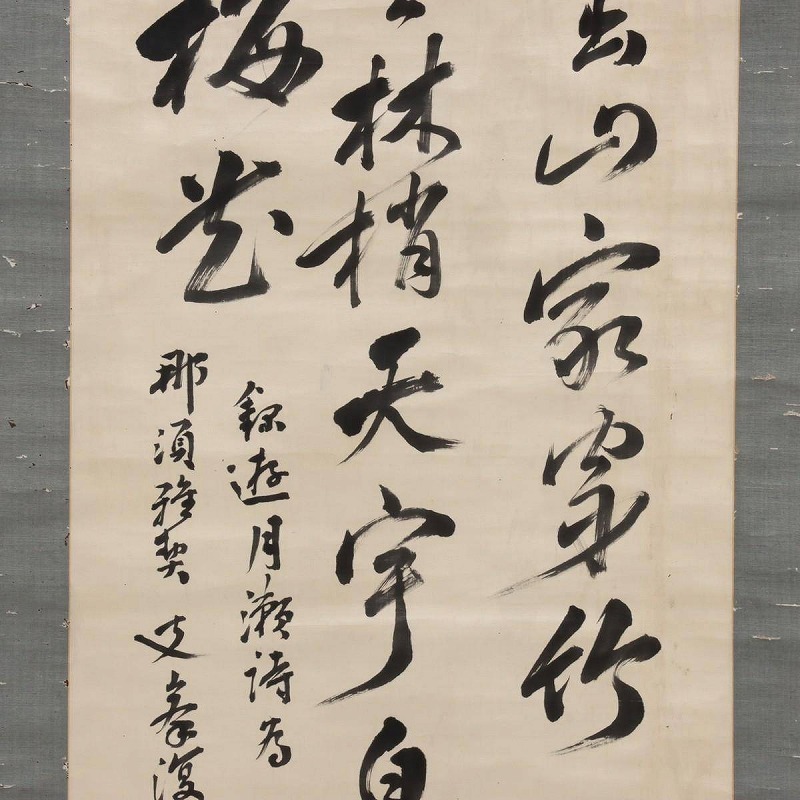 出山家穿竹
林梢天宇白
梅花
録遊月瀬詩為
那須雅契 支峯復